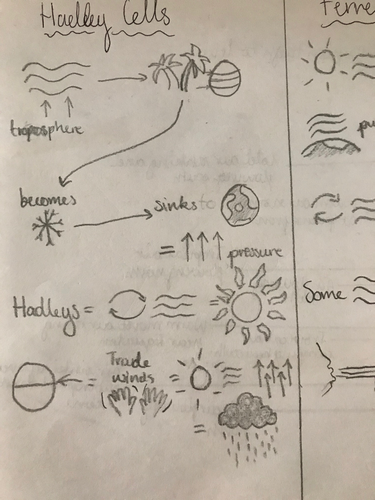 Hadley Cells
troposphere
becomes
sinks to
= pressure
Hadleys =
= Trade
winds =
=
Ferre
pu
Some